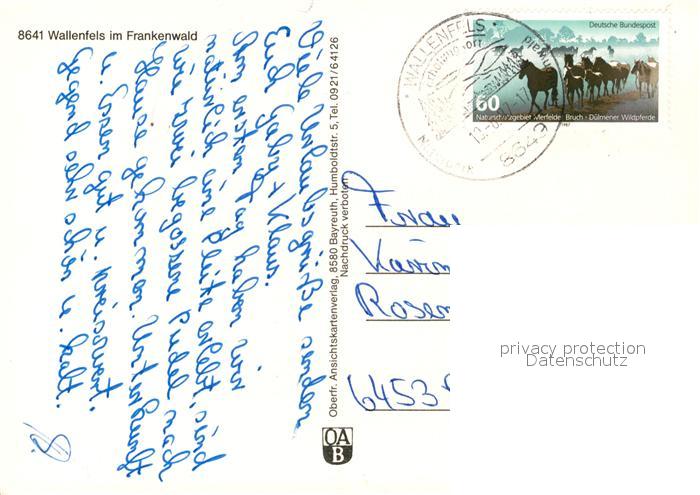 8641 Wallenfels im Frankenwald
Viele Urlaubsgrüße senden
Euch Gabys + Klaus.
Am ersten Tag haben wir
natürlich eine Pleite erlebt, sind
wie zwei begossene Pudel nach
Hause gekommen. Unterkunft
u. Essen gut u. preiswert.
Gegend sehr schön u. kalt.
Oberfr. Ansichtskartenverlag, 8580 Bayreuth, Humboldtstr. 5, Tel. 0921/64126
Nachdruck verboten
OA
B
WALLENFELS
8641
Deutsche Bundespost
60
Naturschutzgebiet Merfelder Bruch - Dülmener Wildpferde
Frau
Karin
Rosen
6453
privacy protection
Datenschutz